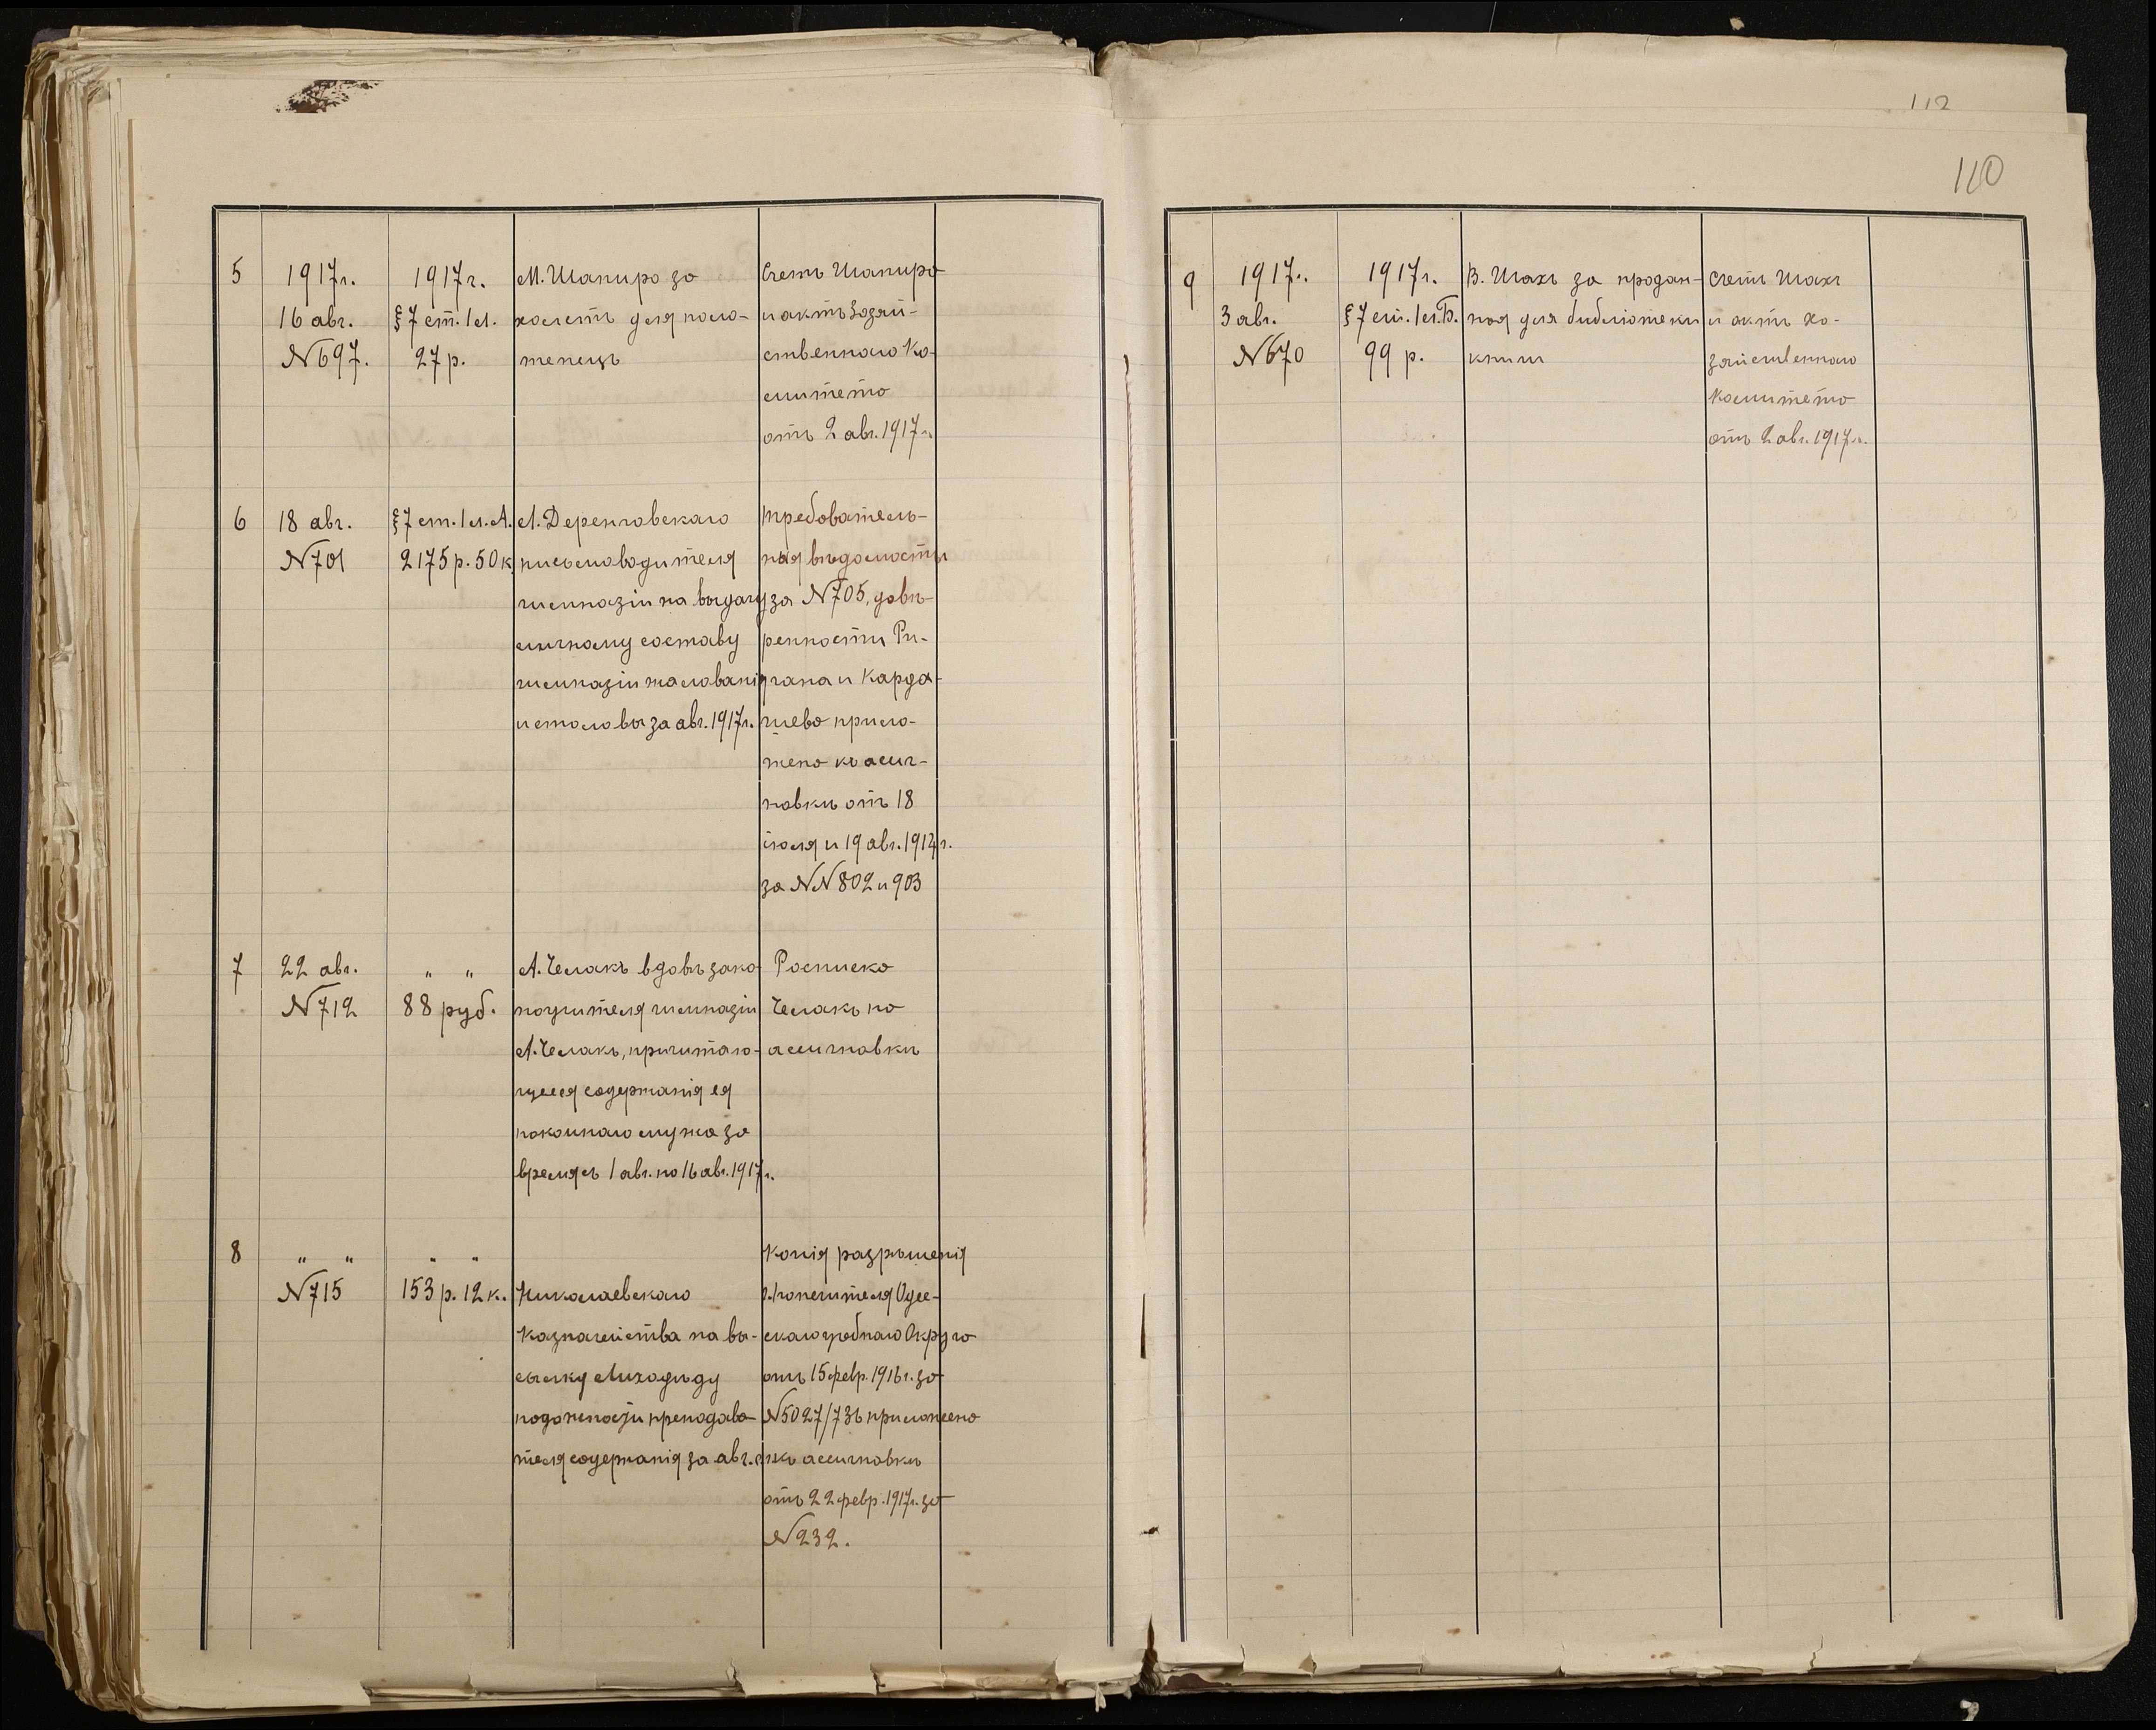 112
110
5
1917г.
16 авг.
№697.
1917г.
§7 ст. 1 л.
27 р.
М. Шапиро за
холстъ для поло-
тенецъ
Счетъ Шапиро
и актъ Хозяй-
ственнаго Ко-
митета
отъ 2 авг. 1917г.
6
18 авг.
№701
§7 ст. 1 л. А.
2175 р. 50 к.
А. Деренговскаго
письмоводителя
гимназіи на выдачу
личному составу
гимназіи жалованія
и столовы за авг. 1917г.
Требователь-
ная вѣдомость
за №705, довѣ-
ренности Ри-
гана и Карда-
шева прило-
жена къ ассиг-
новкѣ отъ 18
іюля и 19 авг. 1914г.
за №№ 802 и 903
7
22 авг.
№712
" "
88 руб.
А. Челакъ вдовѣ зако-
ноучителя гимназіи
А. Челакъ, причитаю-
щееся содержанія ея
покойнаго мужа за
время съ 1 авг. по 16 авг. 1917г.
Росписка
Челакъ на
ассигновкѣ
8
" "
№715
" "
153 р. 12 к.
Николаевскаго
Казначейства на вы-
сылку Лиходѣду
преподава-
теля содержанія за авг.
Копія разрѣшенія
г. Попечителя Одес-
скаго учебнаго Округа
отъ 15 февр. 1916г. за
№5027/736 приложена
къ ассигновкѣ
отъ 22 февр. 1917г. за
№232.
9
1917г.
3 авг.
№670
1917г.
§7 ст. 1 л. Б.
99 р.
В. Шахъ за продан-
ныя для библіотеки
книги
Счетъ Шахъ
и актъ Хо-
зяйственнаго
Комитета
отъ 2 авг. 1917г.